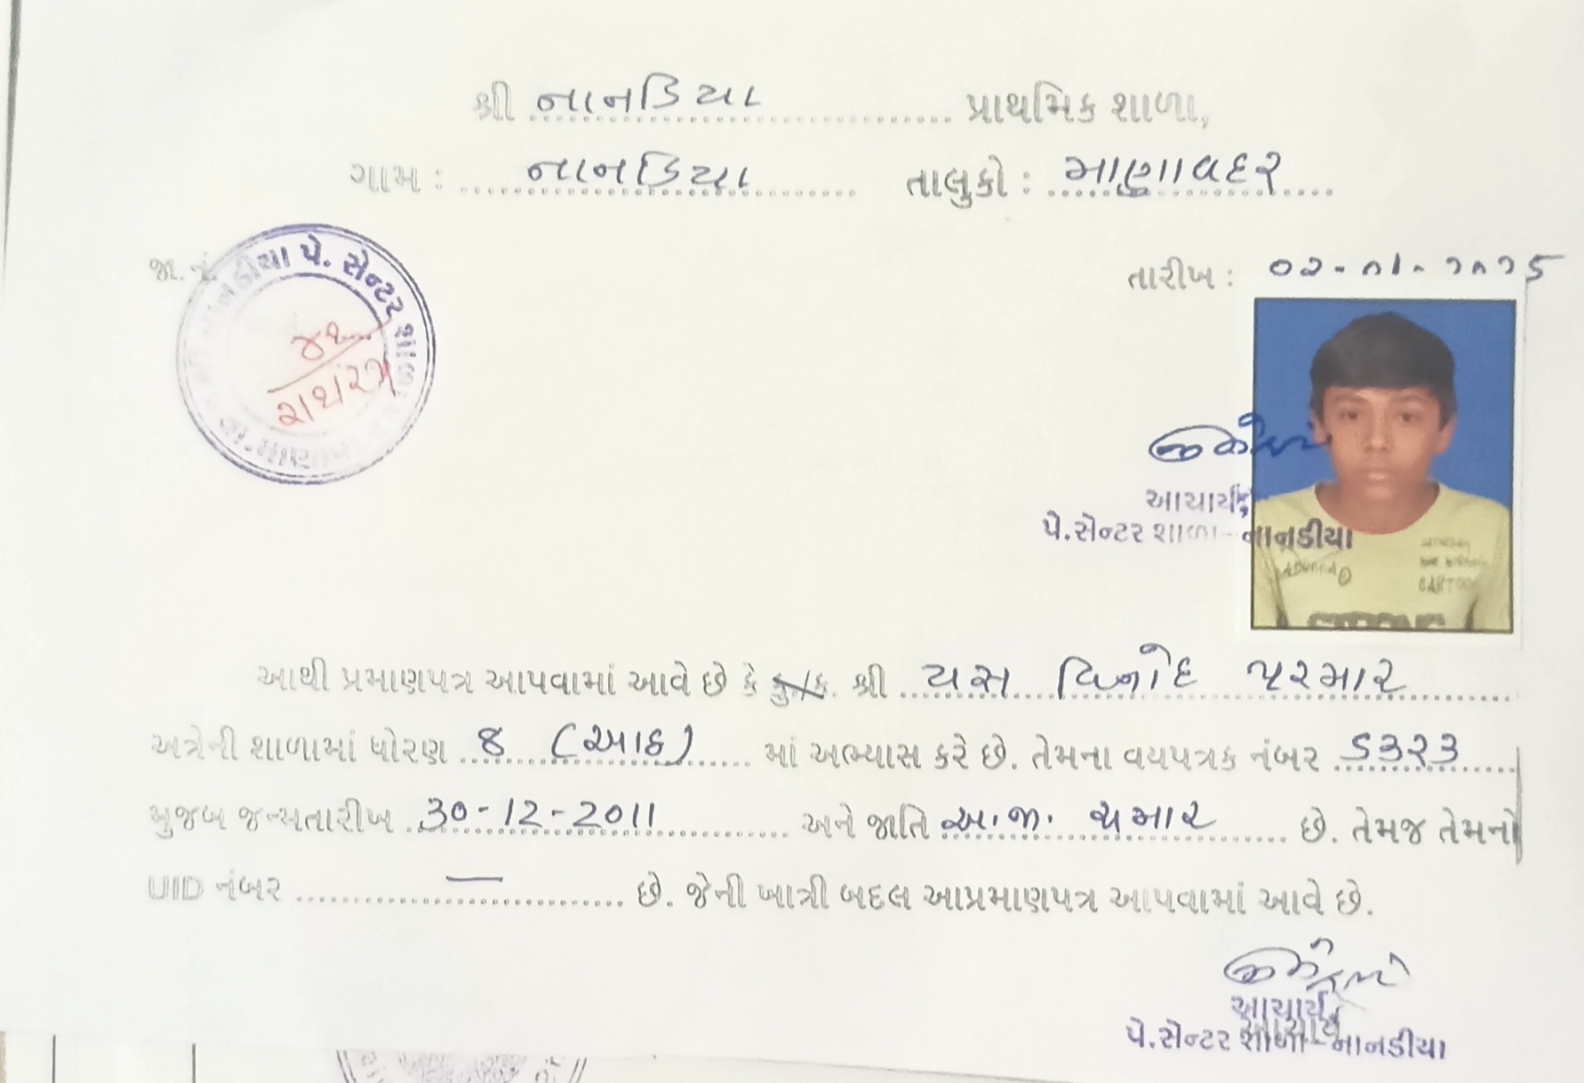 શ્રી નાનડિયા પ્રાથમિક શાળા,
ગામ : નાનડિયા તાલુકો : માણાવદર
જા. નં.
નાનડીયા પે. સેન્ટર શાળા
તારીખ : ૦૨-૦૧-૨૦૨૫
આચાર્ય
પે.સેન્ટર શાળા - નાનડીયા
CARTOO
આથી પ્રમાણપત્ર આપવામાં આવે છે કે કુ/ક. શ્રી યસ વિનોદ પરમાર
અત્રેની શાળામાં ધોરણ ૮ (આઠ) માં અભ્યાસ કરે છે. તેમના વયપત્રક નંબર ૬૩૨૩
મુજબ જન્મતારીખ 30-12-2011 અને જાતિ અ.જા. ચમાર છે. તેમજ તેમનો
UID નંબર — છે. જેની ખાત્રી બદલ આપ્રમાણપત્ર આપવામાં આવે છે.
આચાર્ય
પે.સેન્ટર શાળા - નાનડીયા